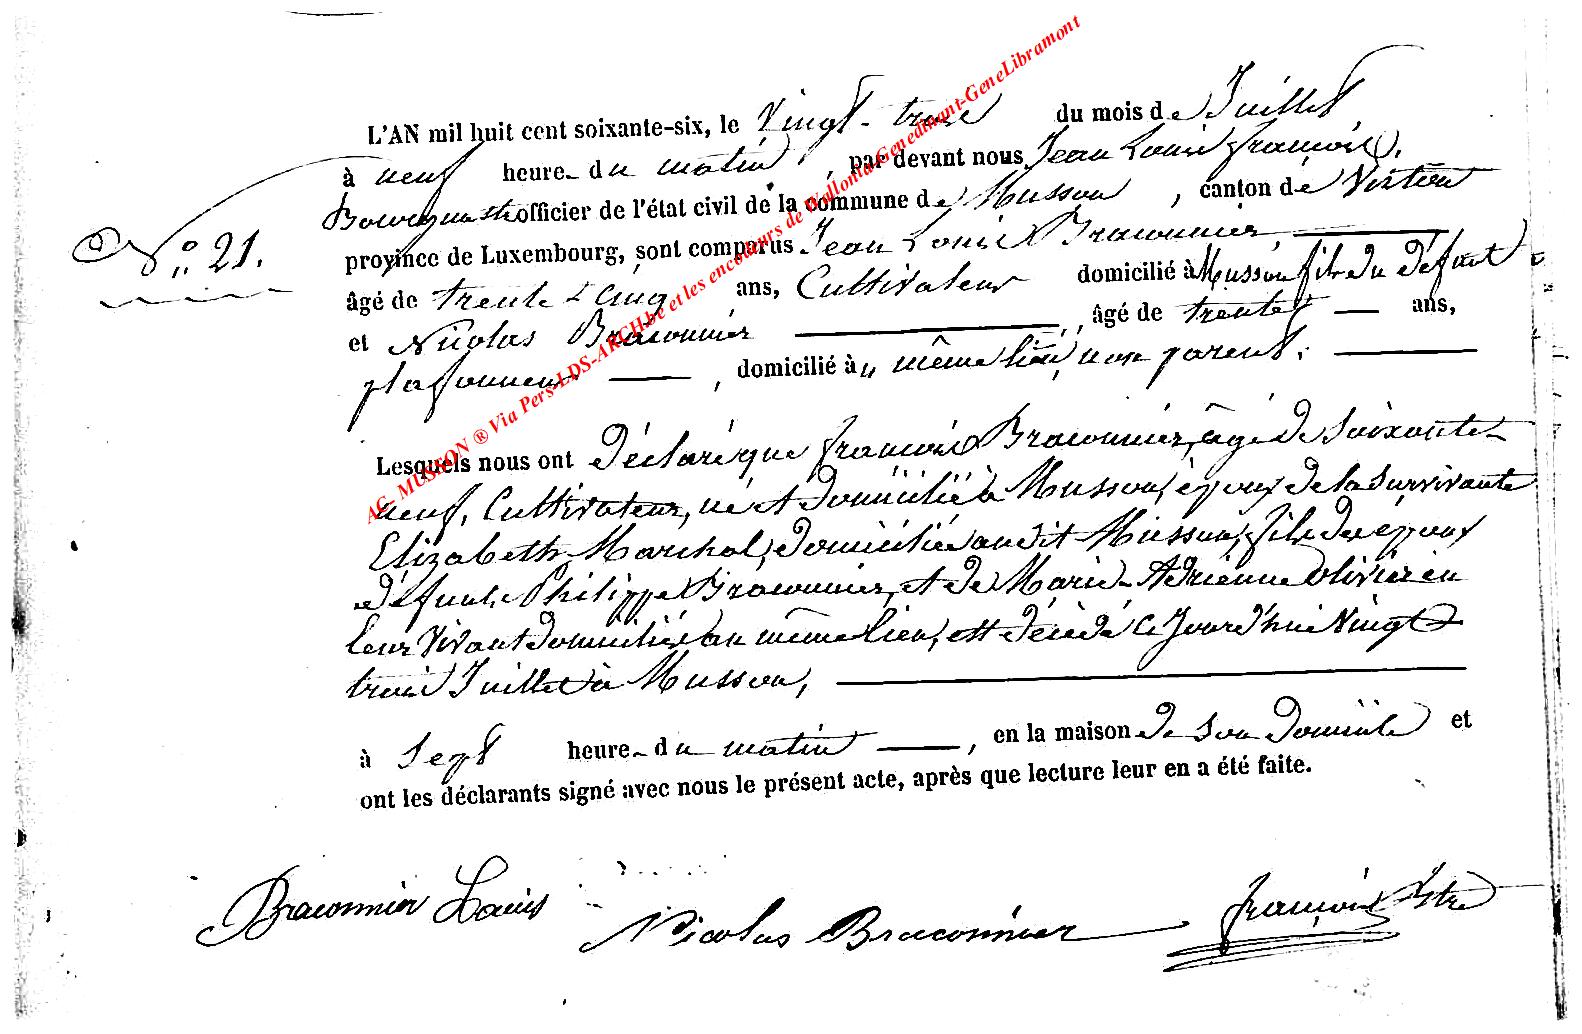 L'AN mil huit cent soixante-six, le Vingt-trois du mois de Juillet
à neuf heure du matin, par devant nous Jean Louis François,
Bourgmestre officier de l'état civil de la commune de Musson, canton de Virton
N° 21.
province de Luxembourg, sont comparus Jean Louis Braconnier,
âgé de trente cinq ans, Cultivateur domicilié à Musson fils du défunt
et Nicolas Braconnier, âgé de trente ans,
plafonneur, domicilié à même lieu, non parent.
Lesquels nous ont déclaré que François Braconnier, âgé de soixante-
neuf, Cultivateur, né et domicilié à Musson, époux de la survivante
Elizabeth Marchal, domiciliée audit Musson, fils des époux
défunts Philippe Braconnier, et de Marie-Adrienne Olivier en
leur vivant domiciliés au même lieu, est décédé ce jourd'hui vingt
trois Juillet à Musson,
à Sept heure du matin, en la maison de son domicile et
ont les déclarants signé avec nous le présent acte, après que lecture leur en a été faite.
Braconnier Louis
Nicolas Braconnier
françois
AC- MUSSON ® Via Pers-LDS-ARCH.be et les encodeurs de Wallonia-Genedinant-GeneLibramont